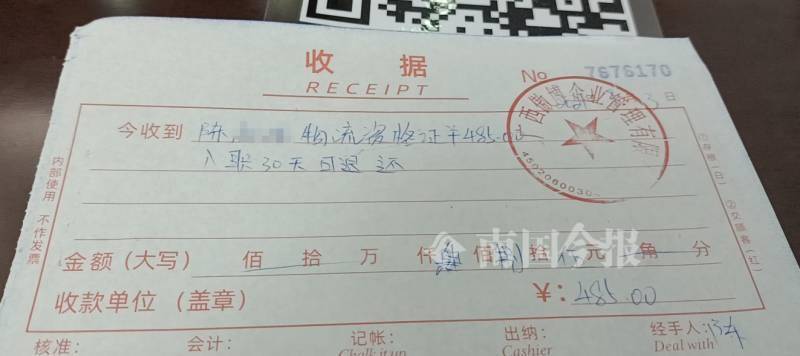 收据
RECEIPT
No 7676170
日
今收到 陈 物流资格证¥485.00
入职30天可退还
内部使用 不作发票
①存根（白）②交顾客（红）
企业管理有限
4502060030
南国今报
金额（大写） 佰 拾 万 仟 肆 佰 捌 拾 伍 元 角 分
收款单位（盖章） ¥: 485.00
核准: 会计: 记帐: 出纳: 经手人:
Chalk it up Cashier Deal with